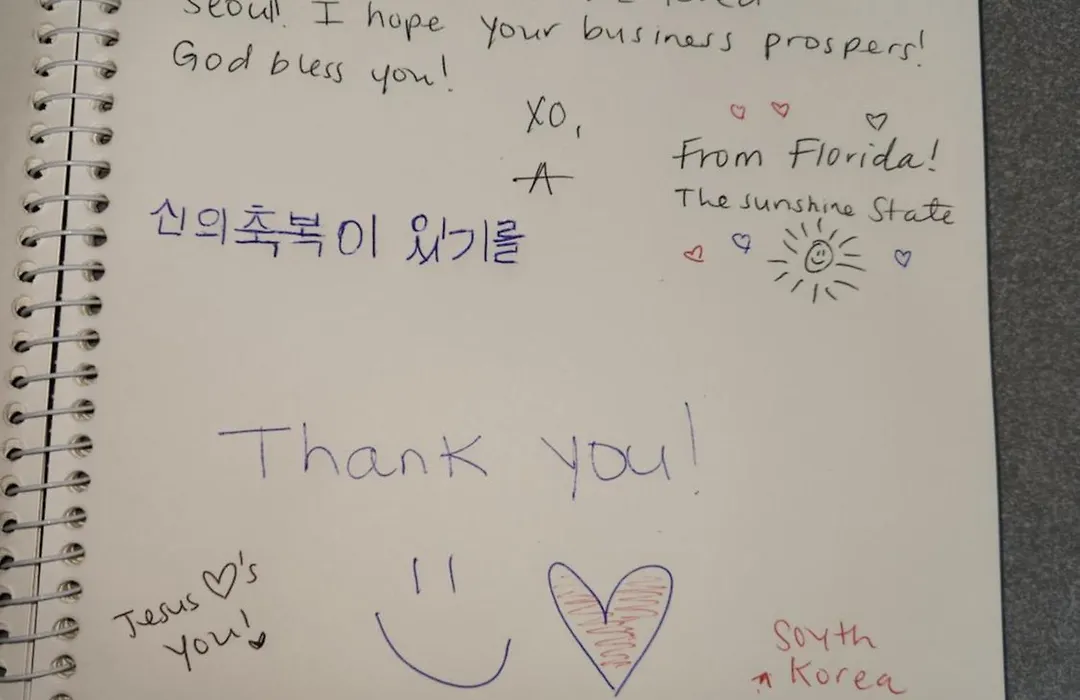 Seoul! I hope your business prospers!
God bless you!
XO,
A
From Florida!
The sunshine State
신의축복이 있기를
Thank you!
Jesus ♡'s
you!
South
Korea